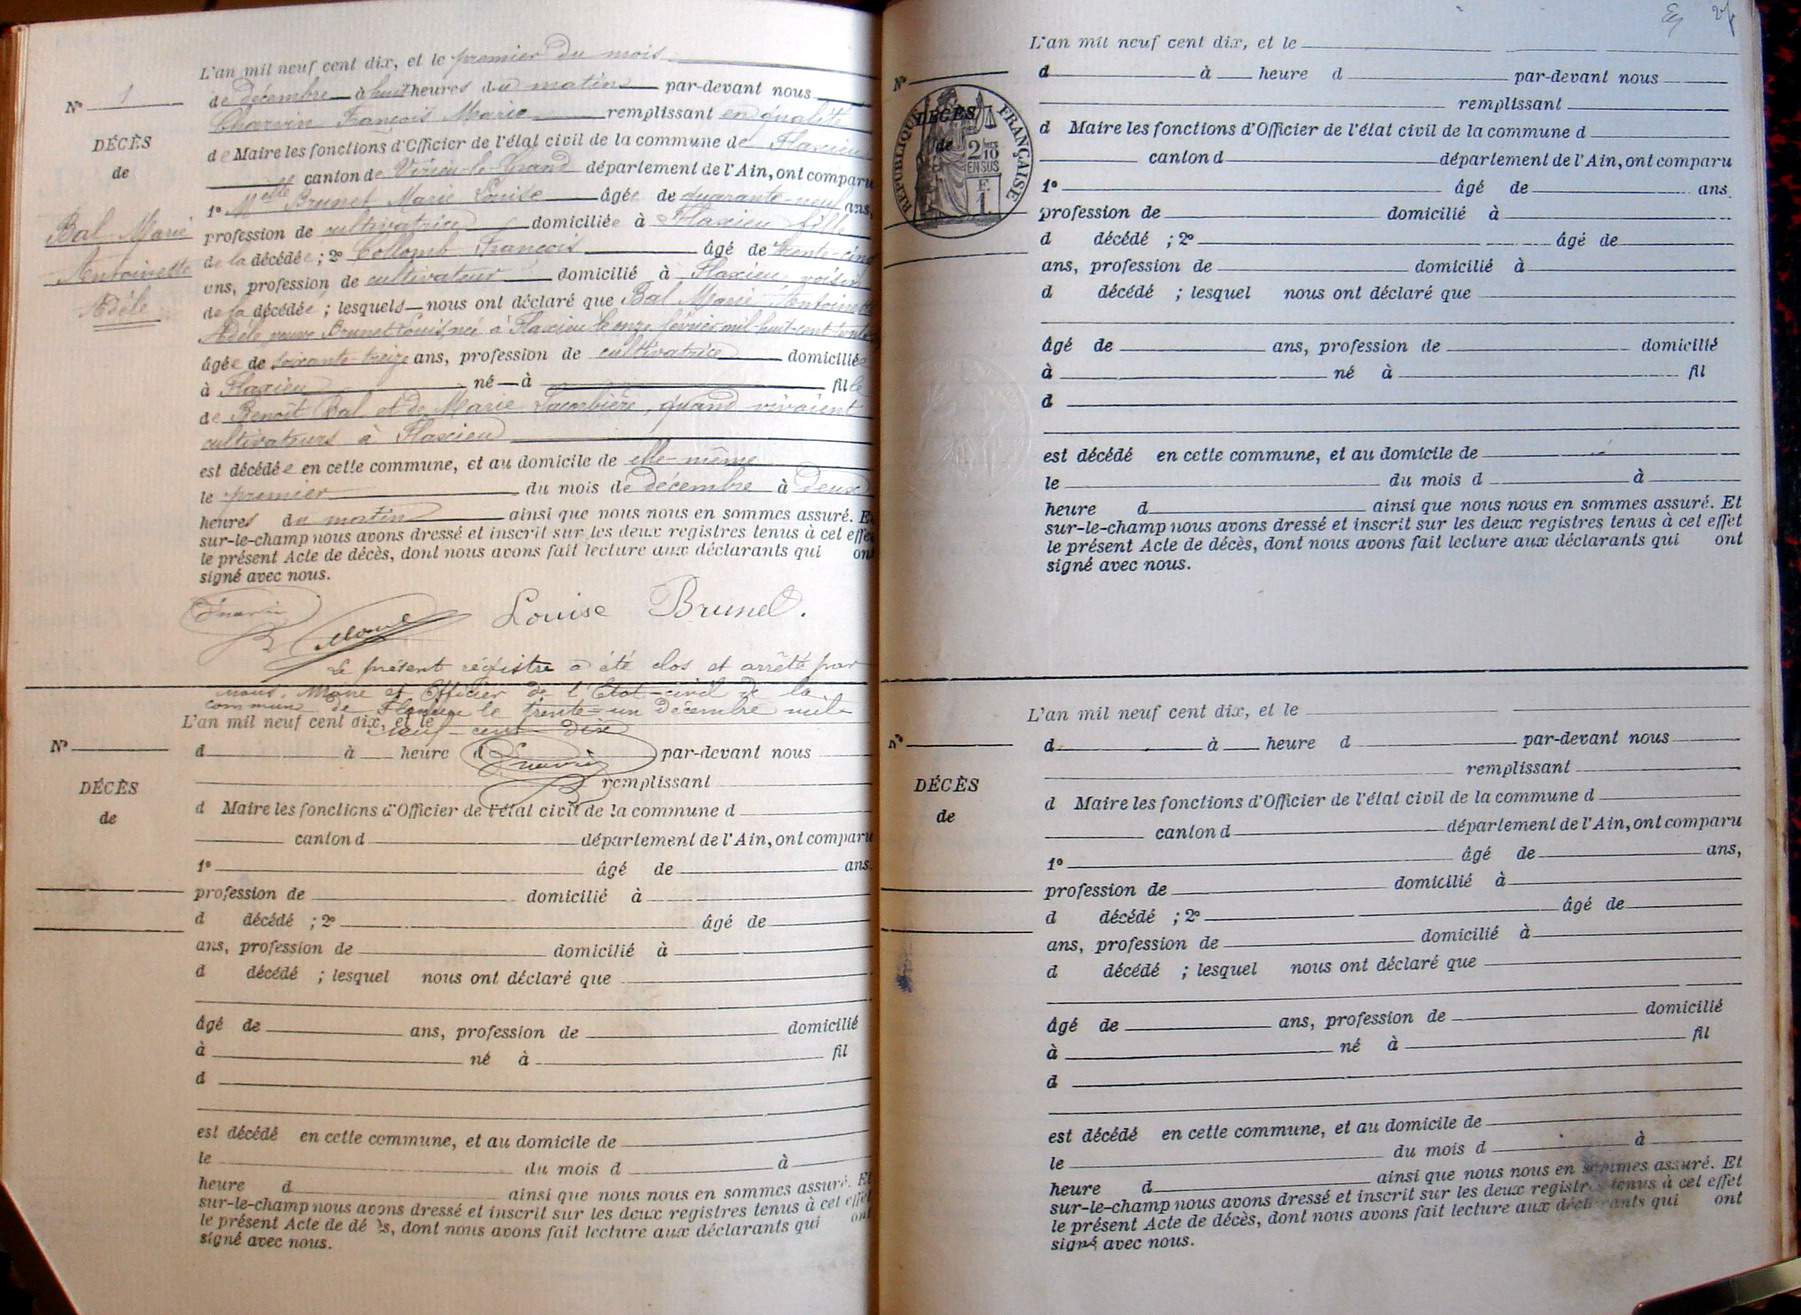 L'an mil neuf cent dix, et le premier du mois
de décembre à huit heures du matin par-devant nous
Charvin François Marie remplissant en qualité
de Maire les fonctions d'Officier de l'état civil de la commune de Flaxieu
canton de Virieu-le-Grand département de l'Ain, ont comparu
1º Brunet Marie Louise âgée de quarante-neuf ans,
profession de cultivatrice domiciliée à Flaxieu fille
de la décédée ; 2º Collomb François âgé de trente-cinq
ans, profession de cultivateur domicilié à Flaxieu voisin
de la décédée ; lesquels nous ont déclaré que Bal Marie Antoinette
Adèle veuve Brunet Louis, née à Flaxieu le onze février mil huit cent trente
âgée de soixante-treize ans, profession de cultivatrice domiciliée
à Flaxieu né à fille
de Benoît Bal et de Marie quand vivaient
cultivateurs à Flaxieu
est décédée en cette commune, et au domicile de elle-même
le premier du mois de décembre à deux
heures du matin ainsi que nous nous en sommes assuré. Et
sur-le-champ nous avons dressé et inscrit sur les deux registres tenus à cet effet
le présent Acte de décès, dont nous avons fait lecture aux déclarants qui ont
signé avec nous.
Nº 1
DÉCÈS
de
Bal Marie
Antoinette
Adèle
Louise Brunet.
Le présent registre a été clos et arrêté par
nous, Maire et Officier de l'Etat-civil de la
commune de Flaxieu le trente-un Décembre mil
neuf-cent dix
L'an mil neuf cent dix, et le
Nº
d à heure d par-devant nous
remplissant
DÉCÈS
de
d Maire les fonctions d'Officier de l'état civil de la commune d
canton d département de l'Ain, ont comparu
1º âgé de ans,
profession de domicilié à
d décédé ; 2º âgé de
ans, profession de domicilié à
d décédé ; lesquel nous ont déclaré que
âgé de ans, profession de domicilié
à né à fil
d
est décédé en cette commune, et au domicile de
le du mois d à
heure d ainsi que nous nous en sommes assuré. Et
sur-le-champ nous avons dressé et inscrit sur les deux registres tenus à cet effet
le présent Acte de décès, dont nous avons fait lecture aux déclarants qui ont
signé avec nous.
L'an mil neuf cent dix, et le
Nº
d à heure d par-devant nous
remplissant
DÉCÈS
de
RÉPUBLIQUE FRANÇAISE
2/10
EN SUS
F.
1
d Maire les fonctions d'Officier de l'état civil de la commune d
canton d département de l'Ain, ont comparu
1º âgé de ans,
profession de domicilié à
d décédé ; 2º âgé de
ans, profession de domicilié à
d décédé ; lesquel nous ont déclaré que
âgé de ans, profession de domicilié
à né à fil
d
est décédé en cette commune, et au domicile de
le du mois d à
heure d ainsi que nous nous en sommes assuré. Et
sur-le-champ nous avons dressé et inscrit sur les deux registres tenus à cet effet
le présent Acte de décès, dont nous avons fait lecture aux déclarants qui ont
signé avec nous.
L'an mil neuf cent dix, et le
Nº
d à heure d par-devant nous
remplissant
DÉCÈS
de
d Maire les fonctions d'Officier de l'état civil de la commune d
canton d département de l'Ain, ont comparu
1º âgé de ans,
profession de domicilié à
d décédé ; 2º âgé de
ans, profession de domicilié à
d décédé ; lesquel nous ont déclaré que
âgé de ans, profession de domicilié
à né à fil
d
est décédé en cette commune, et au domicile de
le du mois d à
heure d ainsi que nous nous en sommes assuré. Et
sur-le-champ nous avons dressé et inscrit sur les deux registres tenus à cet effet
le présent Acte de décès, dont nous avons fait lecture aux déclarants qui ont
signé avec nous.